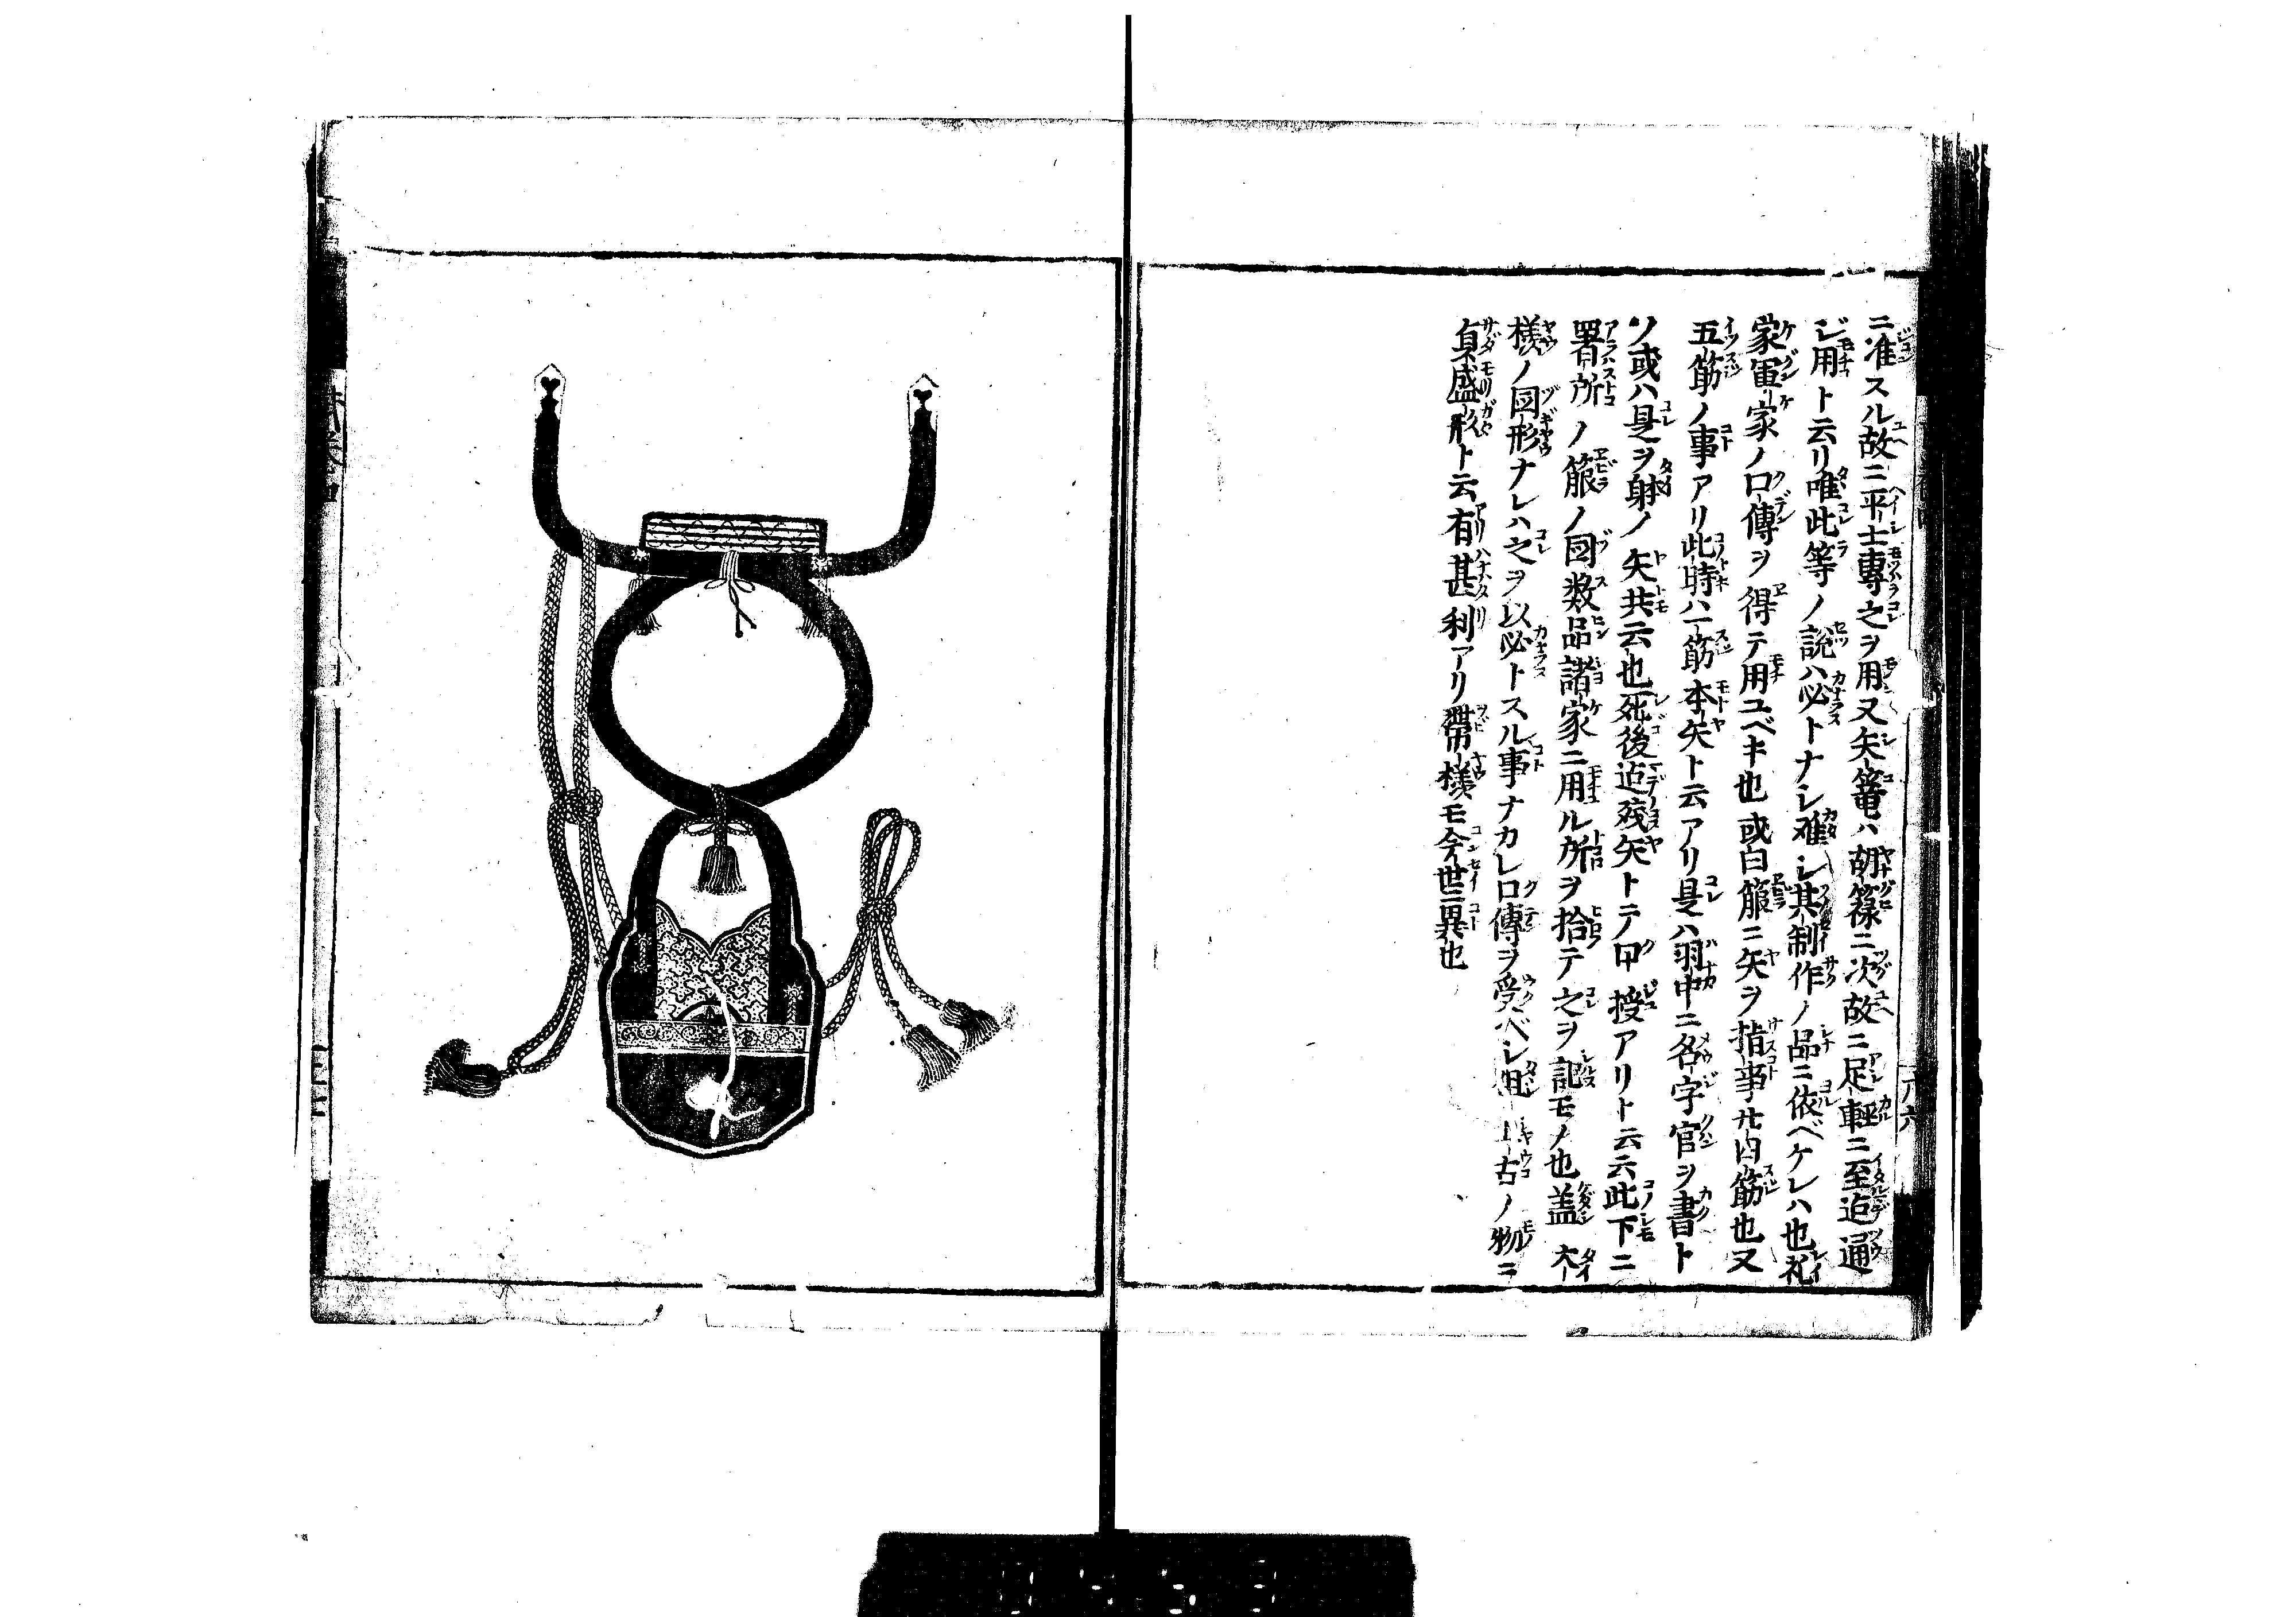 ニ准スル故ニ平士專之ヲ用又矢篭ハ胡籙ニ次故ニ足軽ニ至迠通
ジ用ト云リ唯此等ノ説ハ必トナシ难シ其制作ノ品ニ依ベケレハ也礼
家軍家ノ口傳ヲ得テ用ユベキ也或白箙ニ矢ヲ指事廿四筋也又
五筋ノ事アリ此時ハ一筋本矢ト云アリ是ハ羽中ニ名字官ヲ書ト
ソ或ハ是ヲ射ノ矢共云也死後迠残矢トテ口授アリト云云此下ニ
署所ノ箙ノ図数品諸家ニ用ル所ヲ拾テ之ヲ記モノ也盖大
様ノ図形ナレハ之ヲ以必トスル事ナカレ口傳ヲ受ベシ但上古ノ物ニ
貞盛形ト云有甚利アリ帶様モ今世ニ異也